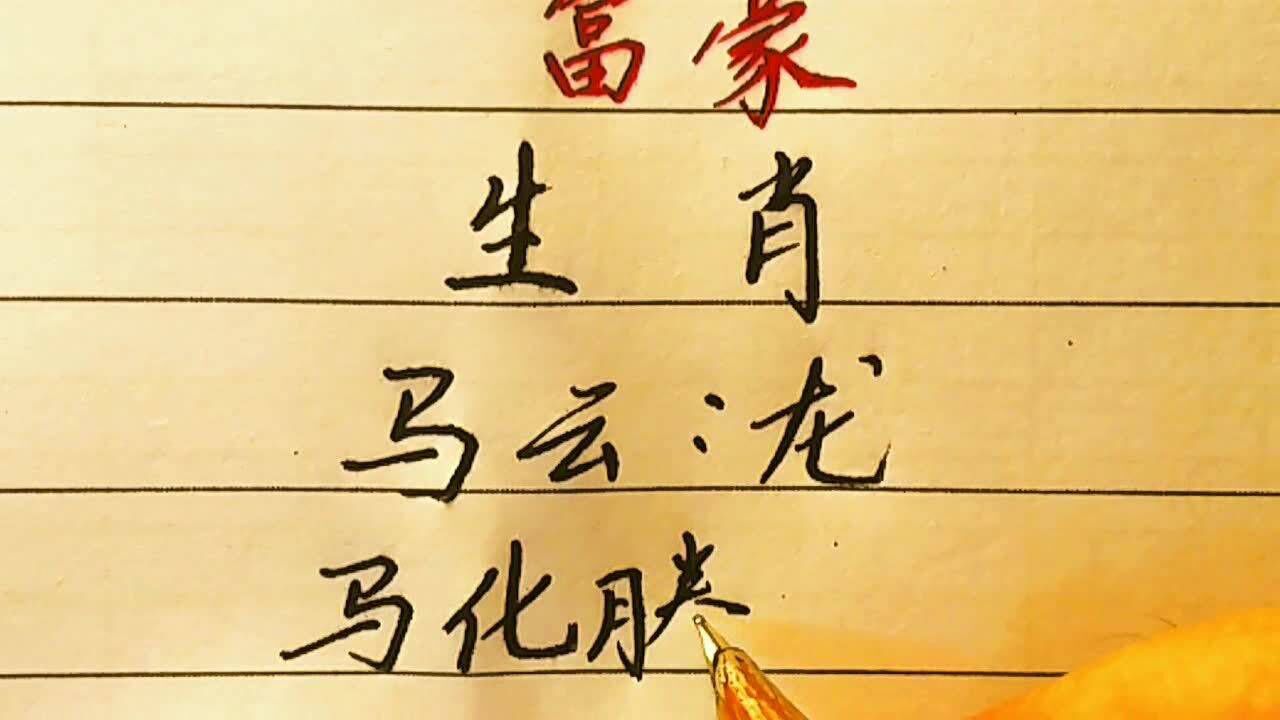 富豪
生肖
马云:龙
马化